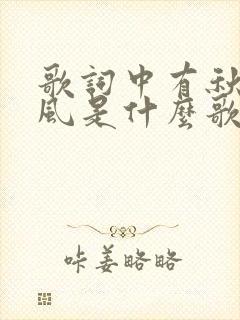 歌詞中有秋
風是什麼歌
咔姜略略